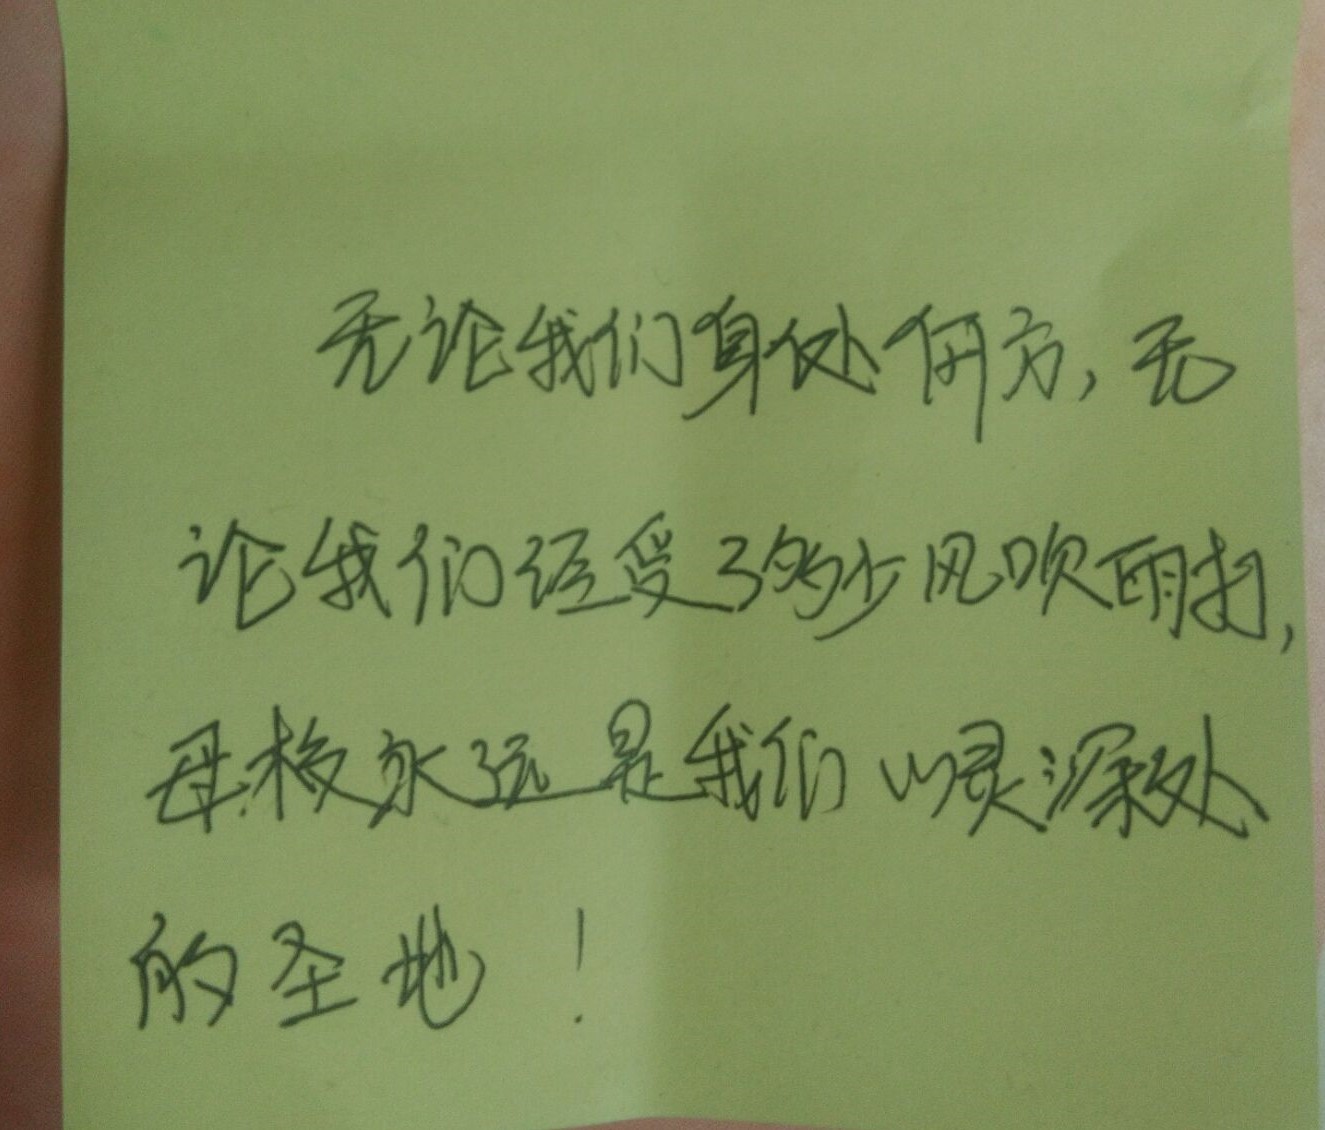 无论我们身处何方，无
论我们经受了多少风吹雨打，
母校永远是我们心灵深处
的圣地！